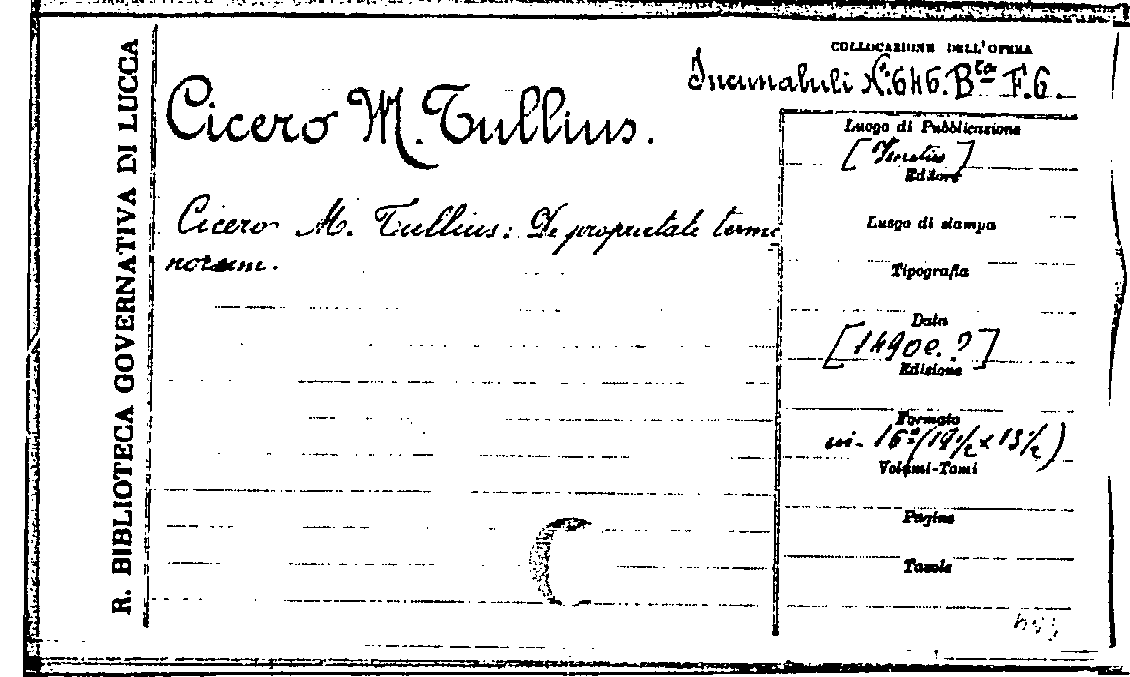 R. BIBLIOTECA GOVERNATIVA DI LUCCA
COLLOCAZIONE DELL'OPERA
Incunabuli N.º 646. Bta F.6.
Cicero M. Tullius.
Cicero M. Tullius: De proprietate termi
norum.
Luogo di Pubblicazione
[Venetiis]
Editore
Luogo di stampa
Tipografia
Data
[1490 c.?]
Edizione
Formato
in-16º (19 1/2 x 13 1/2)
Volumi-Tomi
Pagine
Tavole